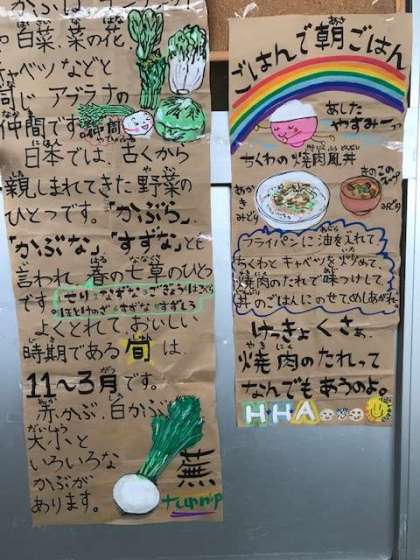 白菜、菜の花、
キャベツなどと
同じアブラナの
仲間です。
日本では、古くから
親しまれてきた野菜の
ひとつです。「かぶら」
「かぶな」「すずな」とも
言われ春の七草のひとつ
です。せり・なずな・ごぎょう・はこべら
ほとけのざ・すずな・すずしろ
よくとれて、おいしい
時期である旬は、
11〜3月です。
赤かぶ、白かぶ、
大小と
いろいろな
かぶが
あります。
蕪
turnip
ごはんで朝ごはん
あした
やすみー
ちくわの焼肉風丼
きのこの
スープ
あか
きみどり
みどり
フライパンに油を入れて
ちくわとキャベツを炒めて、
焼肉のたれで味つけして
丼のごはんにのせてめしあがれ。
けっきょくさぁ、
焼肉のたれって
なんでもあうのよ。
HHA